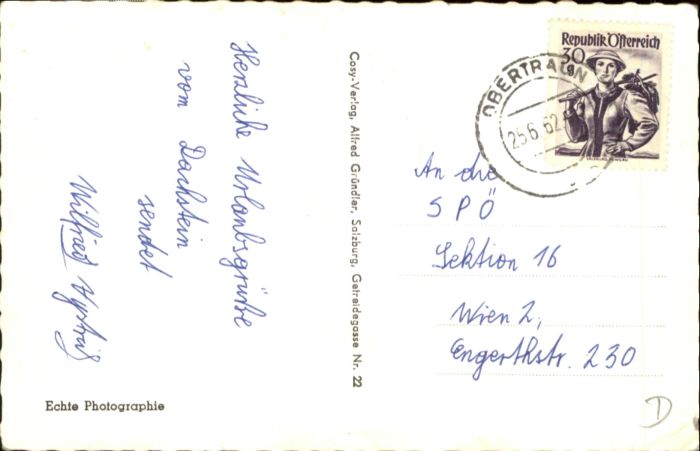 Herzliche Urlaubsgrüße
vom Dachstein
sendet
Wilfried
Cosy-Verlag, Alfred Gründler, Salzburg, Getreidegasse Nr. 22
Echte Photographie
Republik Österreich
30
g
OBERTRAUN
25.6.62
An die
SPÖ
Sektion 16
Wien 2,
Engerthstr. 230
D